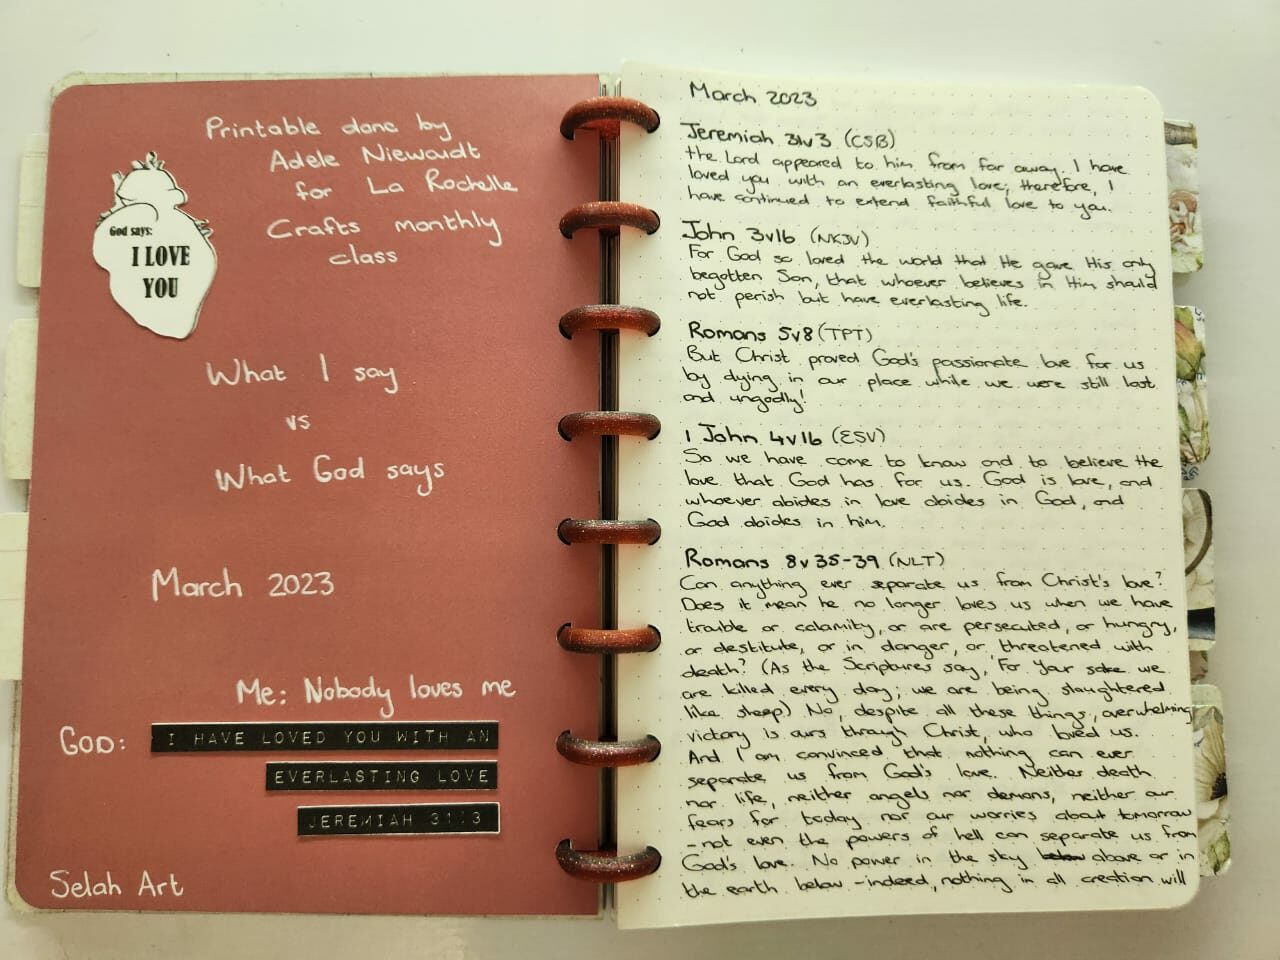 Printable done by
Adele Niewoudt
for La Rochelle
Crafts monthly
class
God says:
I LOVE
YOU
What I say
vs
What God says
March 2023
Me: Nobody loves me
GOD:
I HAVE LOVED YOU WITH AN
EVERLASTING LOVE
JEREMIAH 31:3
Selah Art
March 2023
Jeremiah 31v3 (CSB)
the Lord appeared to him from far away. I have
loved you with an everlasting love; therefore, I
have continued to extend faithful love to you.
John 3v16 (NKJV)
For God so loved the world that He gave His only
begotten Son, that whoever believes in Him should
not perish but have everlasting life.
Romans 5v8 (TPT)
But Christ proved God's passionate love for us
by dying in our place while we were still lost
and ungodly!
1 John 4v16 (ESV)
So we have come to know and to believe the
love that God has for us. God is love, and
whoever abides in love abides in God, and
God abides in him.
Romans 8v35-39 (NLT)
Can anything ever separate us from Christ's love?
Does it mean he no longer loves us when we have
trouble or calamity, or are persecuted, or hungry,
or destitute, or in danger, or threatened with
death? (As the Scriptures say, 'For your sake we
are killed every day; we are being slaughtered
like sheep) No, despite all these things, overwhelming
victory is ours through Christ, who loved us.
And I am convinced that nothing can ever
separate us from God's love. Neither death
nor life, neither angels nor demons, neither our
fears for today nor our worries about tomorrow
- not even the powers of hell can separate us from
God's love. No power in the sky above or in
the earth below - indeed, nothing in all creation will